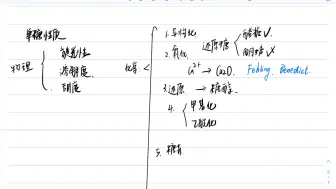 单糖性质
物理
旋光性
溶解度
甜度
化学
1. 异构化
2. 氧化 还原糖
醛糖 ✓.
酮糖 ✗
Cu²⁺ → Cu₂O. Fehling. Benedict.
3. 还原 → 糖醇
4. 甲基化
乙酰化
5. 糖